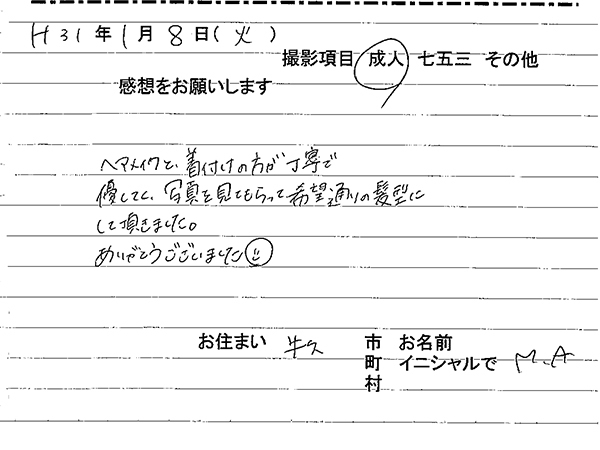 H31年1月8日(火)
撮影項目 成人 七五三 その他
感想をお願いします
ヘアメイクと、着付けの方が丁寧で
優しくて、写真を見てもらって希望通りの髪型に
して頂きました。
ありがとうございました
お住まい 牛久 市 お名前
町 イニシャルで M.A
村